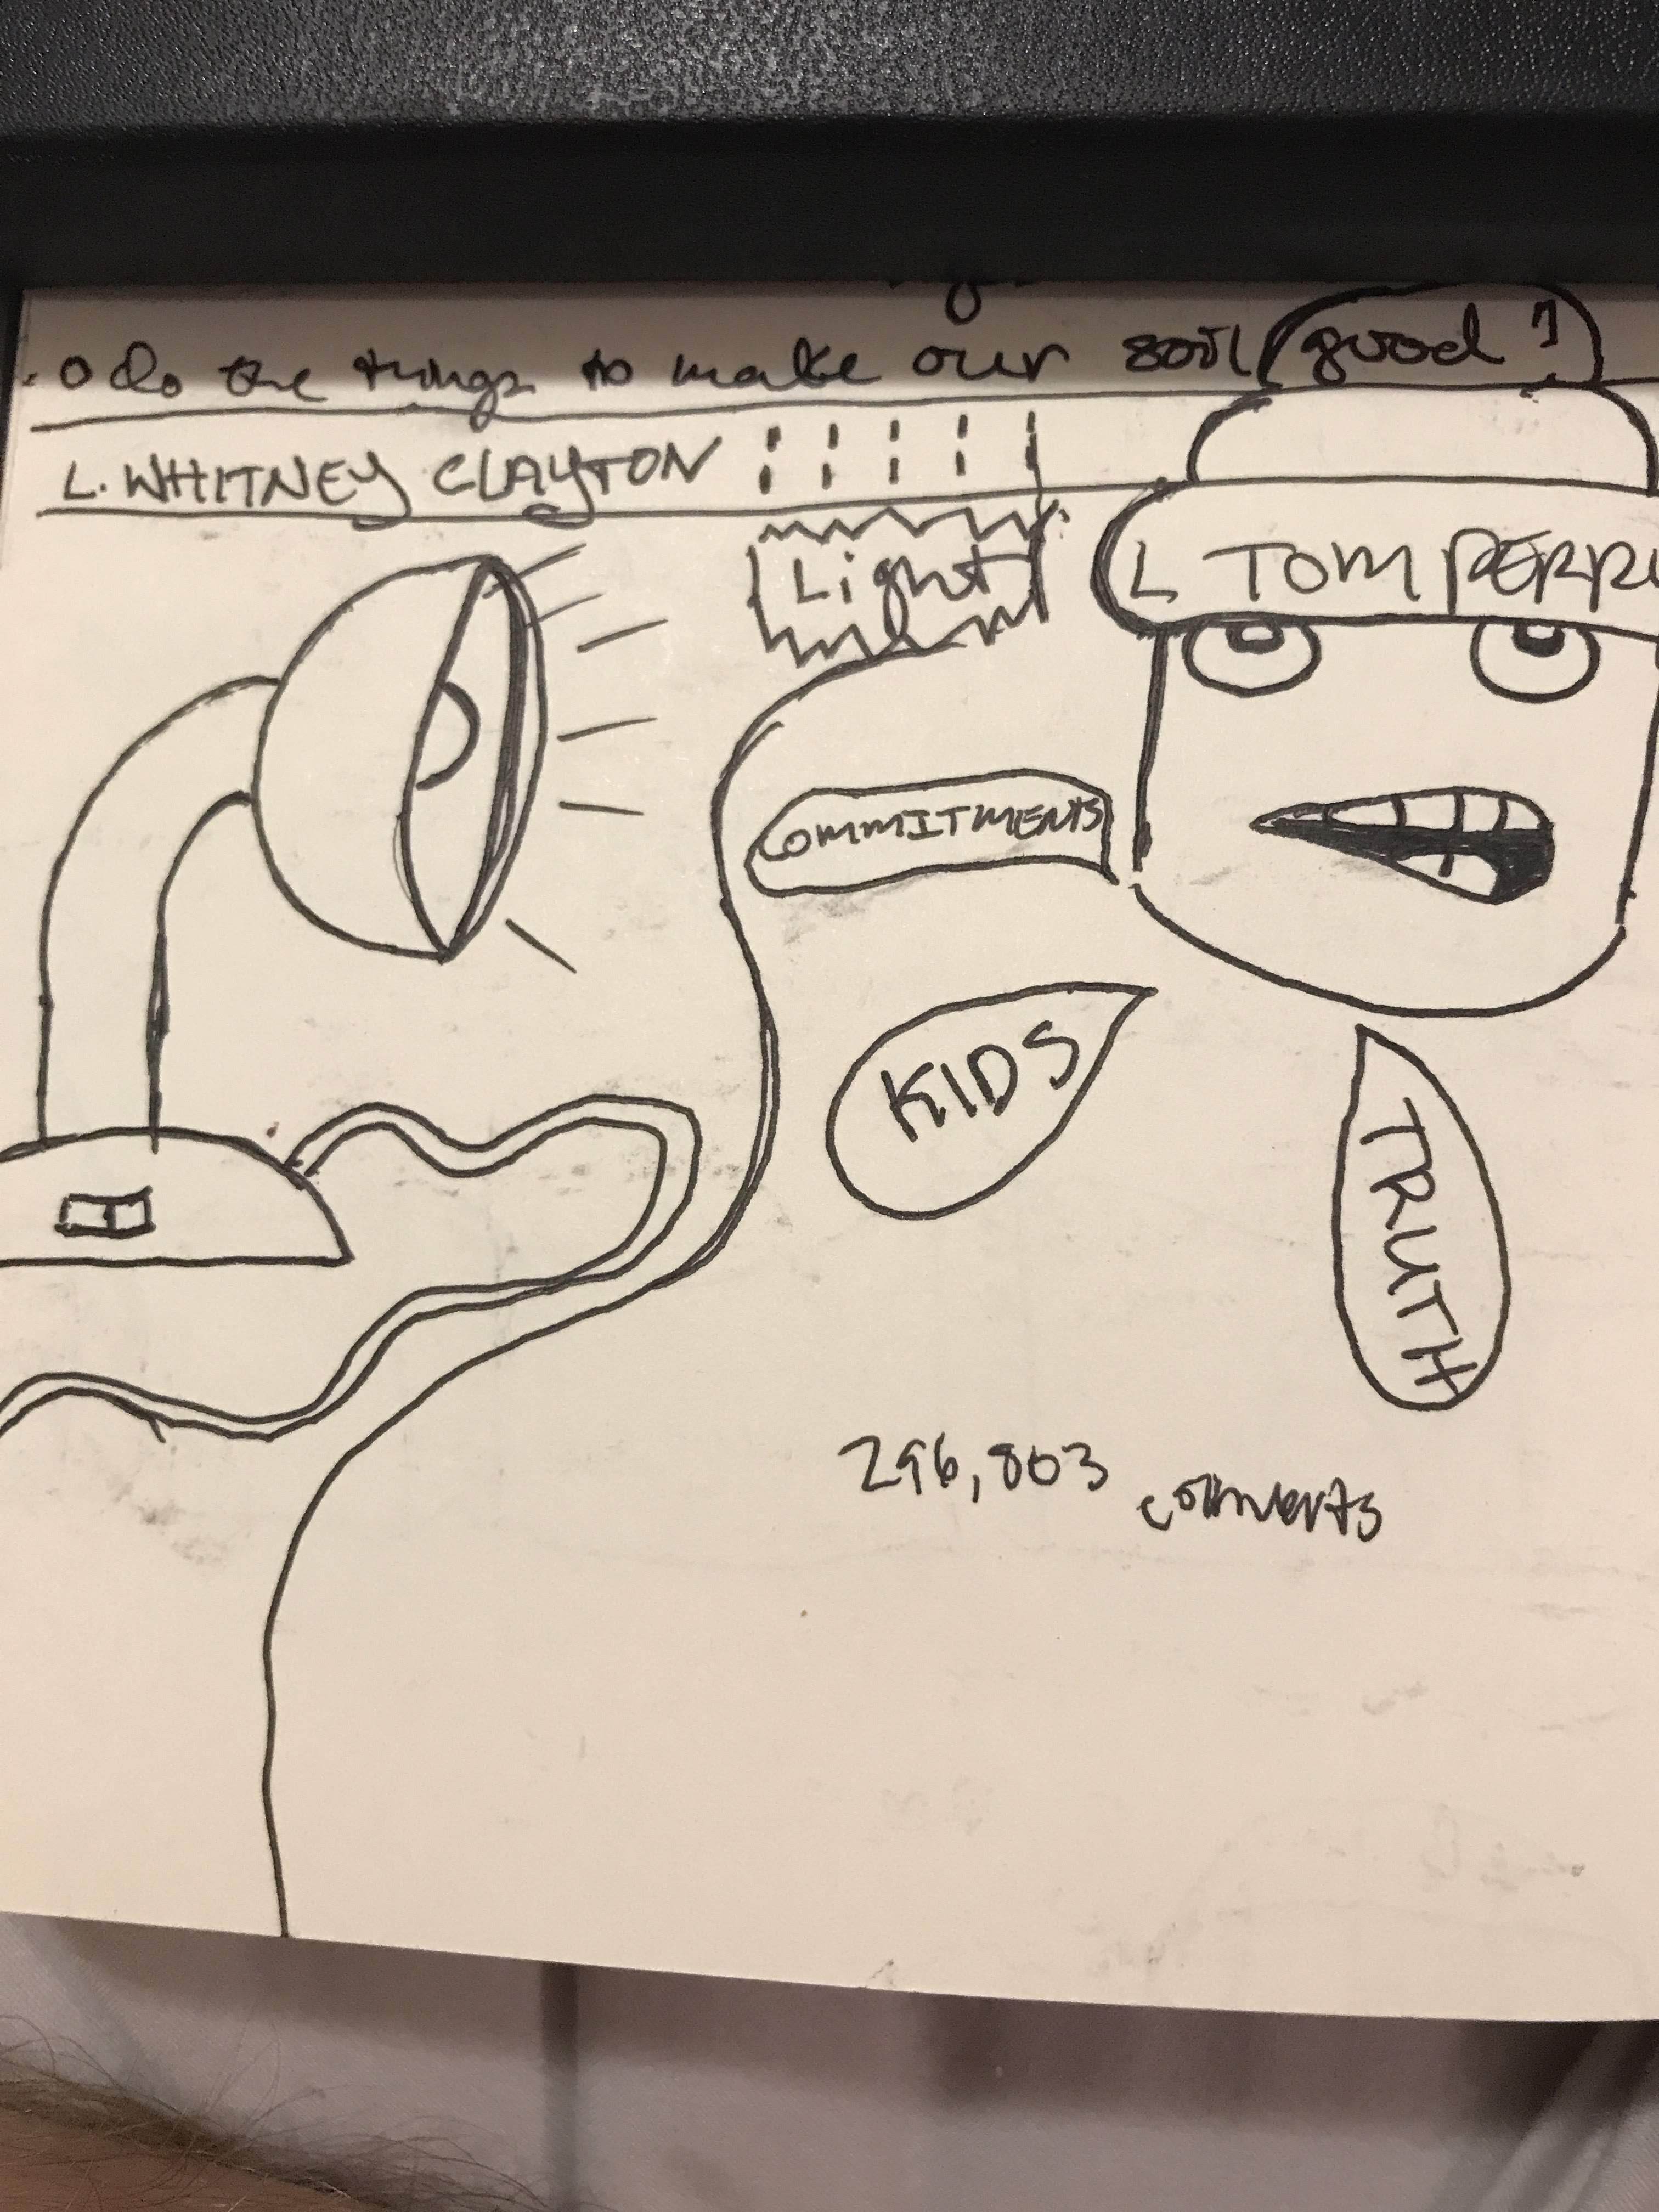 do the things to make our soil good!
L. WHITNEY CLAYTON
Light
L TOM PERR
COMMITMENTS
KIDS
TRUTH
296,803 converts